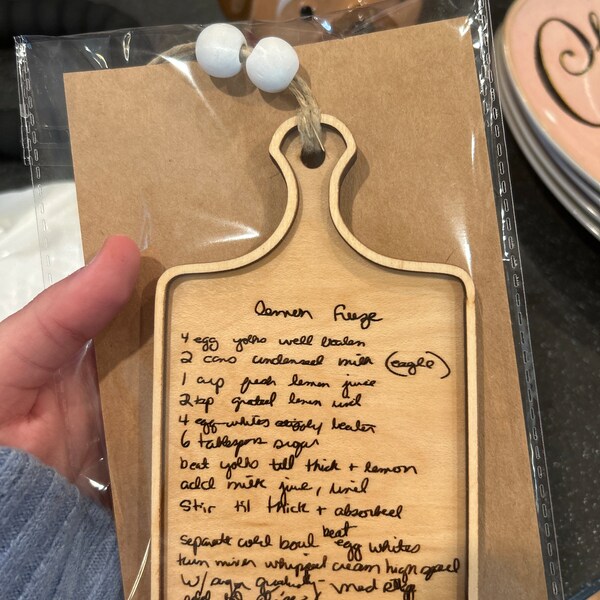 Lemon Freeze
4 egg yolks well beaten
2 cans condensed milk (eagle)
1 cup fresh lemon juice
2 tsp grated lemon rind
4 egg whites stiffly beaten
6 tablespoons sugar
beat yolks till thick + lemon
add milk juice, rind
Stir til thick + absorbed
separate cold bowl beat egg whites
turn mixer whipped cream high speed
w/ sugar gradually med stiff
add